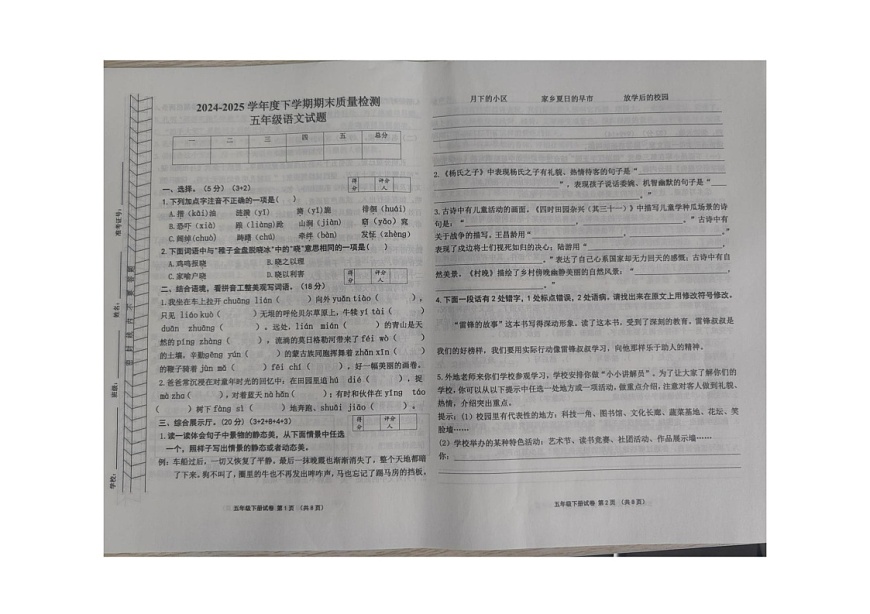 2024-2025 学年度下学期期末质量检测
五年级语文试题
一 二 三 四 五 总分
得分 评分人
一、选择。（5 分）（3+2）
1.下列加点字注音不正确的一项是( )
A.揩(kāi)油 涟漪(yī) 旖(yǐ)旎 徘徊(huái)
B.恐吓(xià) 踉(liàng)跄 山涧(jiàn) 窈(yǎo)窕
C.阔绰(chuò) 踌躇(chú) 牵绊(bàn) 发怔(zhèng)
2.下面词语中与"稚子金盘脱晓冰"中的"晓"意思相同的一项是( )
A.鸡鸣报晓 B.晓之以理
C.家喻户晓 D.晓以利害
得分 评分人
二、结合语境，看拼音工整美观写词语。（18 分）
1.我坐在车上拉开 chuāng lián ( )向外 yuǎn tiào ( )，
只见 liáo kuò ( )无垠的呼伦贝尔草原上，牛犊 yī tài ( )
duān zhuāng ( )。远处，lián mián ( )的青山是天
然的 píng zhàng ( )，流淌的莫日格勒河带来了 féi wò ( )
的土壤。辛勤 gēng yún ( )的蒙古族同胞挥舞着 zhǎn xīn ( )
的鞭子骑着 jùn mǎ ( ) fēi chí ( )，好一幅美丽的画卷。
2.爸爸常沉浸在对童年时光的回忆中：在田园里追 hú dié ( )，捉
mà zha ( )，对着蓝天 nà hǎn ( )；有时和伙伴在 yīng táo
( )树下 fàng sì ( )地奔跑、shuǎi jiāo ( )。
得分 评分人
三、综合展示厅。（20 分）（3+2+8+4+3）
1.读一读体会句子中景物的静态美，从下面情景中任选
一个，照样子写出情景的静态或者动态美。
例：车船过后，一切又恢复了平静。最后一抹晚霞也渐渐消失了。整个天地都暗
了下来。狗不叫了，圈里的牛也不再发出哞哞声，马也忘记了踢马房的挡板。
五年级下册试卷 第 1 页 （共 8 页）
学校：
班级：
姓名：
准考证号：
月下的小区 家乡夏日的早市 放学后的校园
2.《杨氏之子》中表现杨氏之子有礼貌、热情待客的句子是"
"，表现孩子说话委婉、机智幽默的句子是"
"。
3.古诗中有儿童活动的画面，《四时田园杂兴（其三十一）》中描写儿童学种瓜场景的诗
句是："，"。古诗中有
关于战争的描写，王昌龄用"，"
表现了戍边将士们视死如归的决心；陆游用"，
"表达了自己心系国家却无力回天的感慨；古诗中有自
然美景，《村晚》描绘了乡村傍晚幽静美丽的自然风景："，
"。
4.下面一段话有 2 处错字，1 处标点错误，2 处语病。请找出来在原文上用修改符号修改。
"雷锋的故事"这本书写得深动形象，读了这本书，受到了深刻的教育。雷锋叔叔是
我们的好榜样，我们要用实际行动像雷锋叔叔学习，向他那样乐于助人的精神。
5.外地老师来你们学校参观学习，学校安排你做"小小讲解员"。为了让大家了解你们的
学校，你可以从以下提示中任选一处地方或一项活动，做重点介绍，注意对客人做到礼貌、
热情，介绍突出重点。
提示：（1）校园里有代表性的地方：科技一角、图书馆、文化长廊、蔬菜基地、花坛、笑
脸墙……
（2）学校举办的某种特色活动：艺术节、读书竞赛、社团活动、作品展示墙……
你：
五年级下册试卷 第 2 页 （共 8 页）